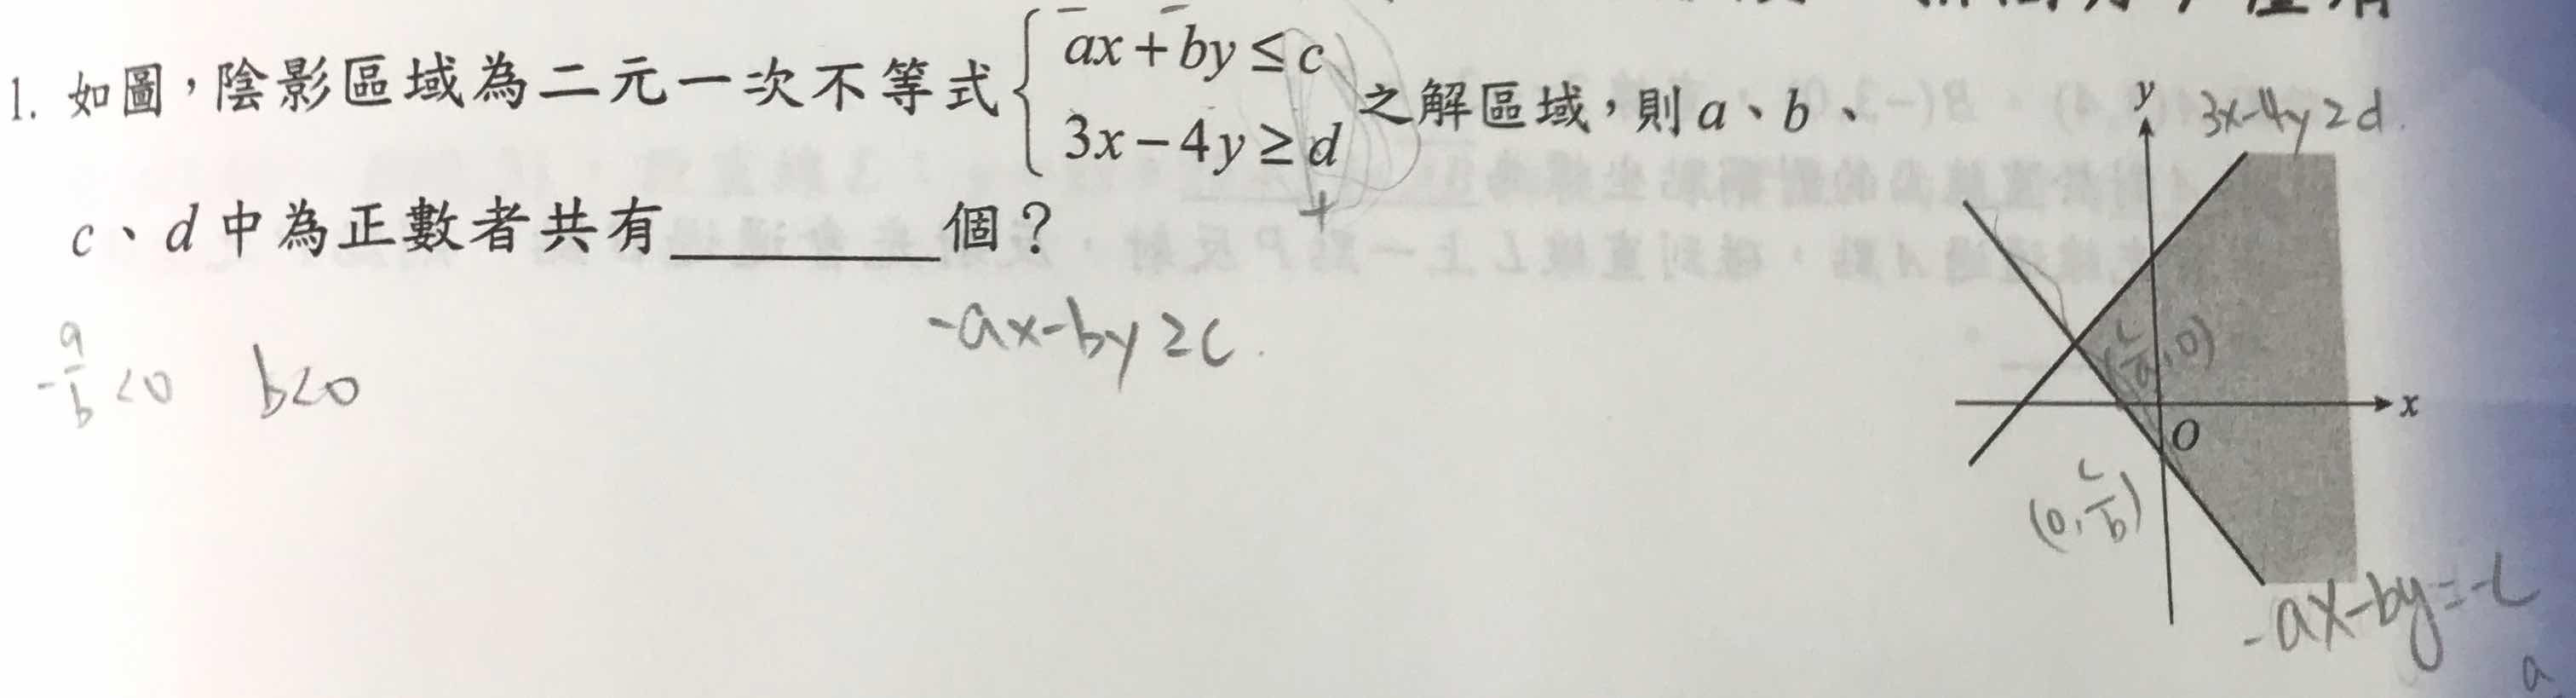 1. 如圖，陰影區域為二元一次不等式 { ax + by ≤ c
3x − 4y ≥ d 之解區域，則 a、b、
c、d 中為正數者共有________個？
y
3x-4y≥d.
x
O
(c/a, 0)
(0, c/b)
-ax-by=-c
a
-a/b <0 b<0
-ax-by≥c.
+